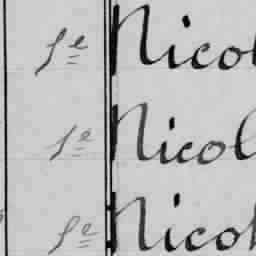 fe Nicol
fe Nicol
fe Nicol